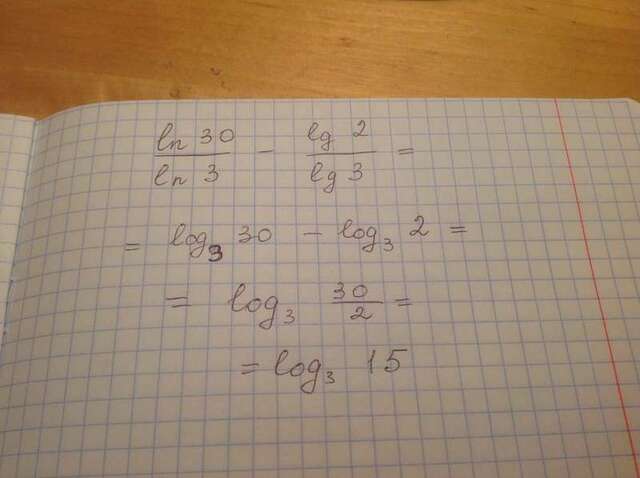 ln 30 / ln 3 - lg 2 / lg 3 =
= log₃ 30 - log₃ 2 =
= log₃ 30/2 =
= log₃ 15